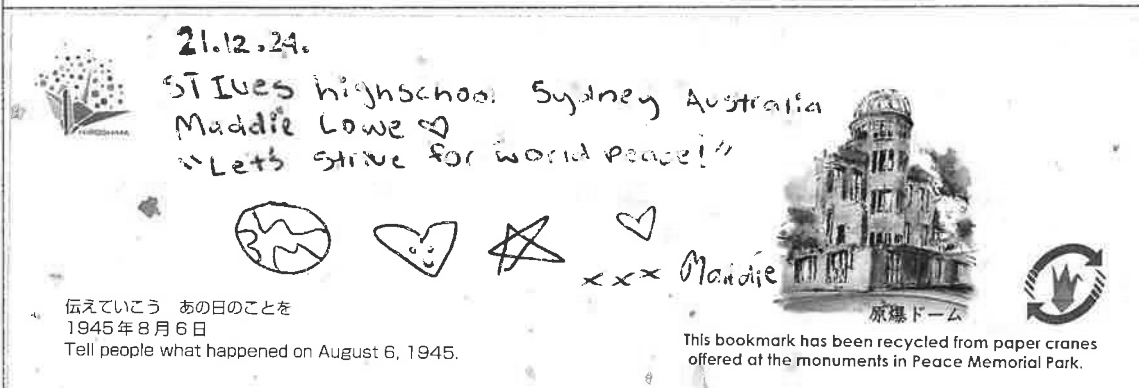 21.12.24.
HIROSHIMA
ST IVes highschool Sydney Australia
Maddie Lowe ♡
"Let's strive for world peace!"
xxx Maddie
伝えていこう あの日のことを
1945年8月6日
Tell people what happened on August 6, 1945.
原爆ドーム
This bookmark has been recycled from paper cranes
offered at the monuments in Peace Memorial Park.